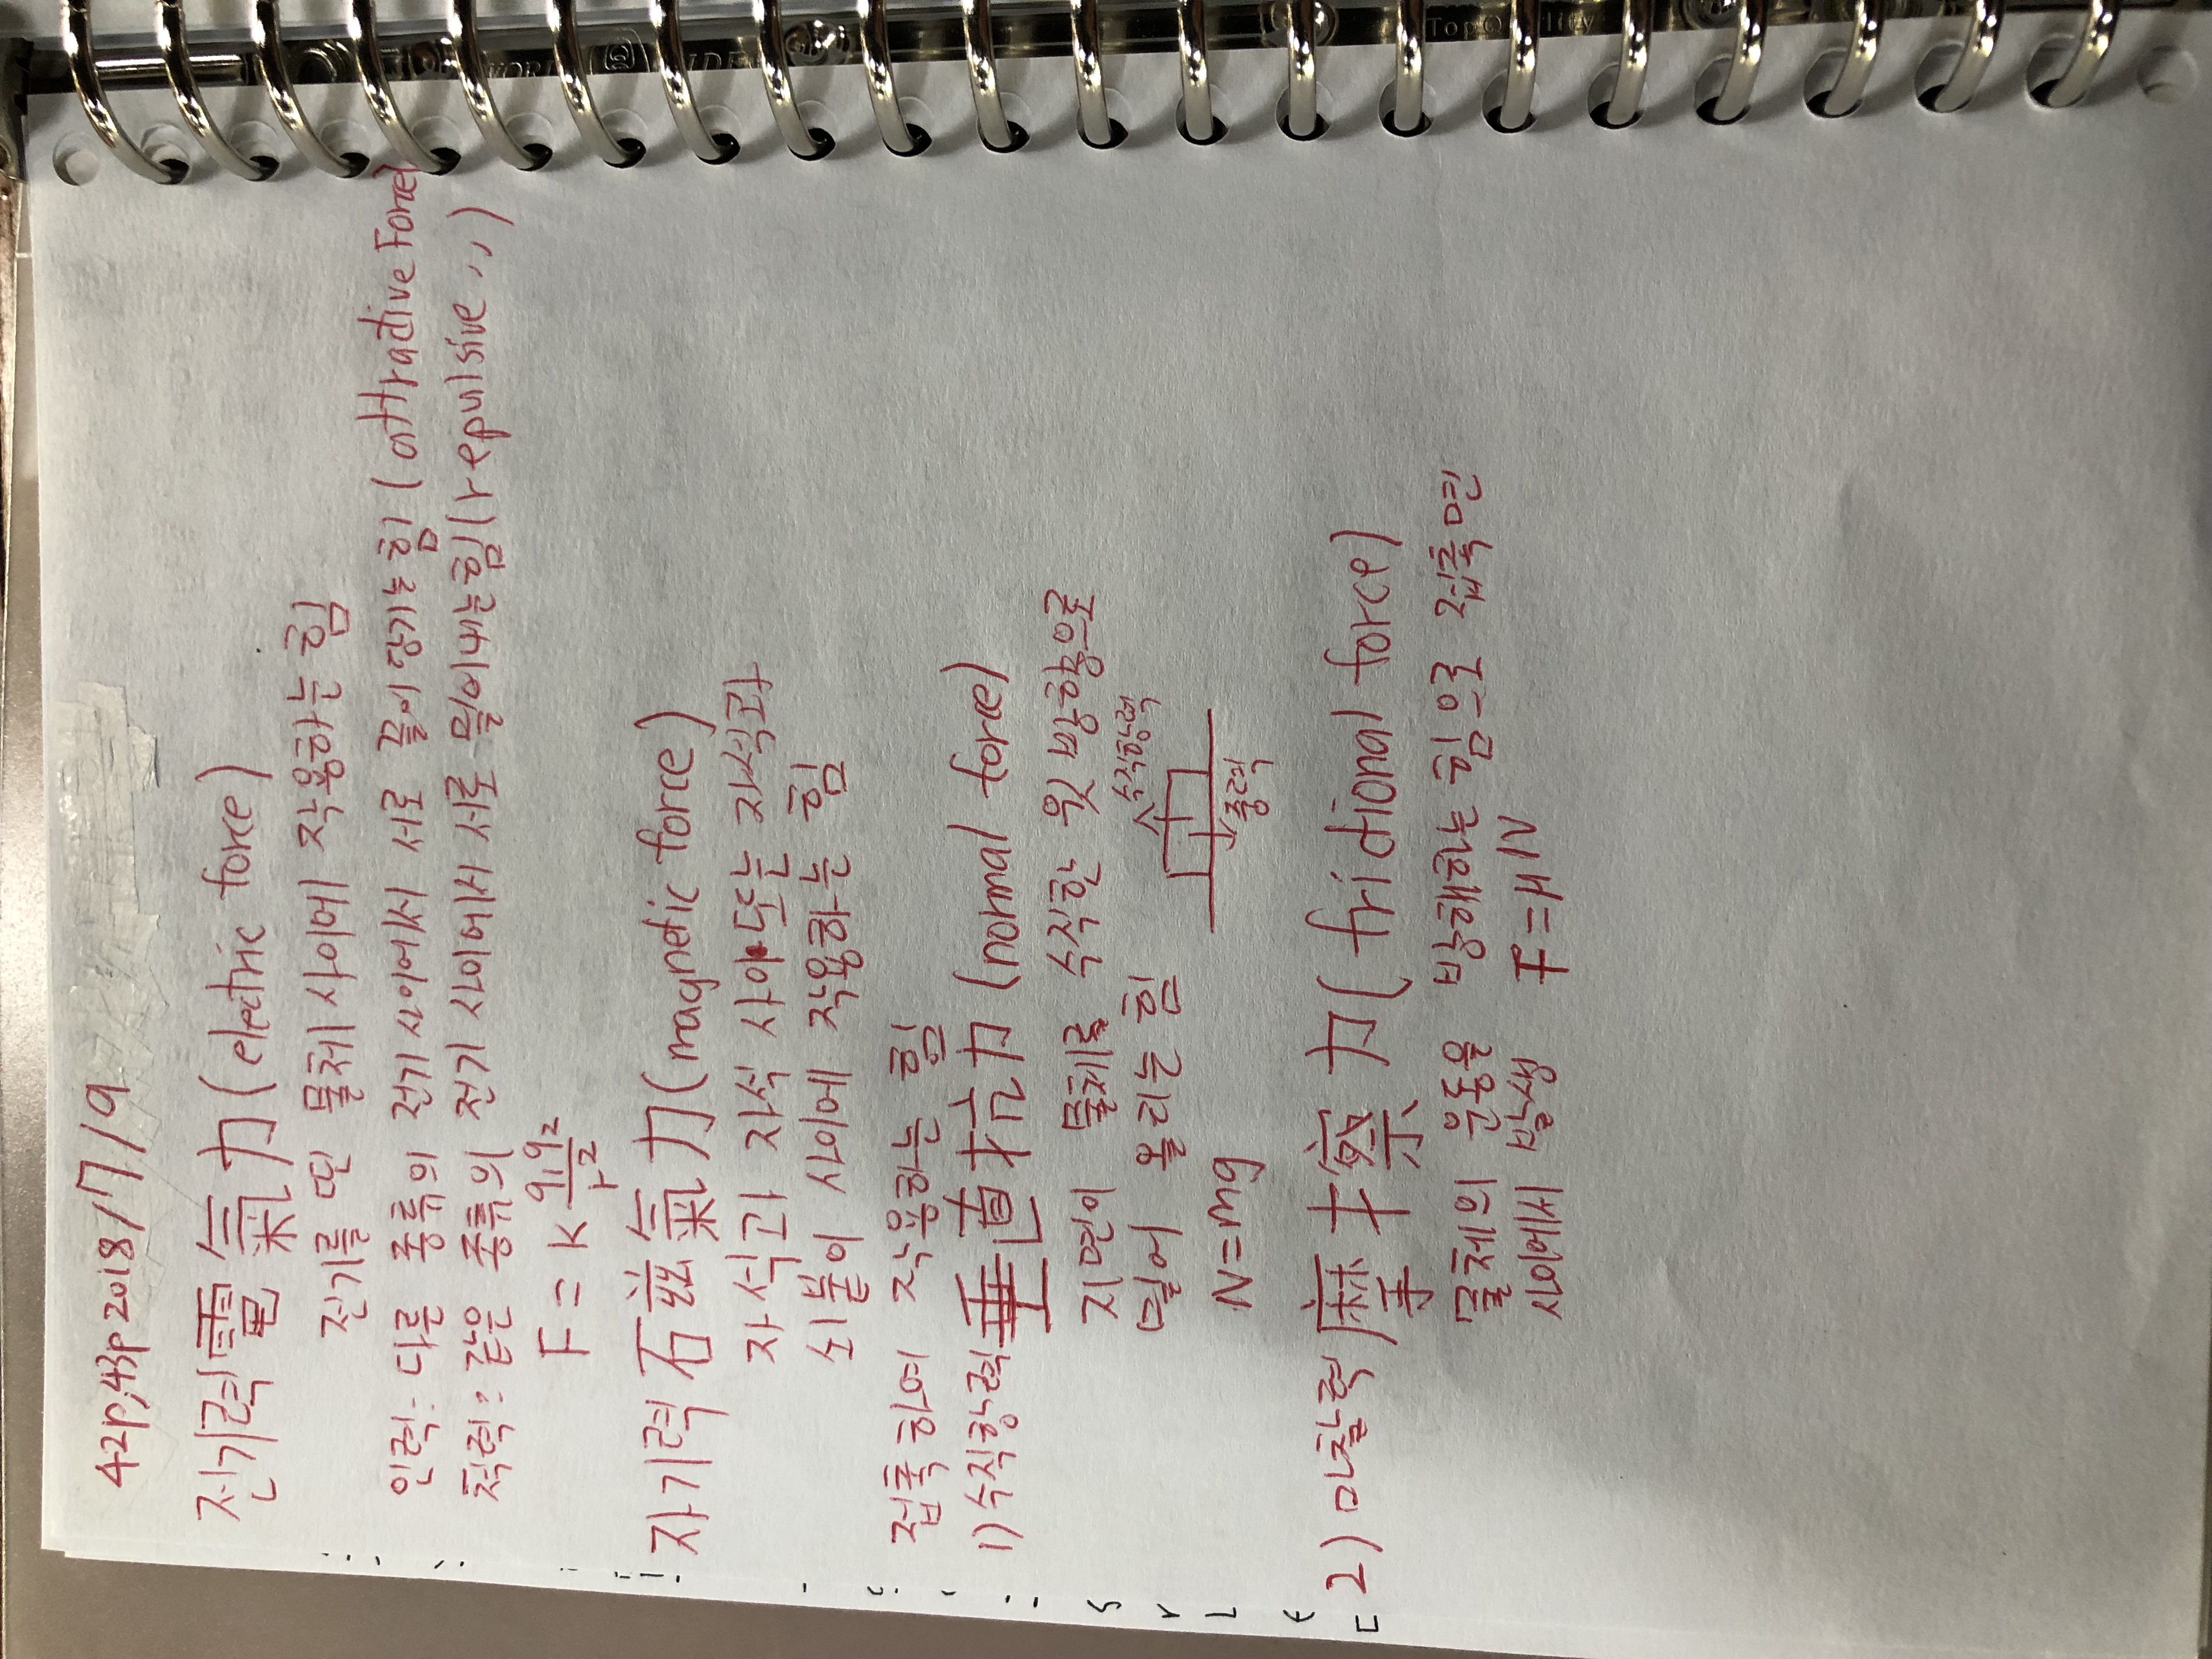 42p,43p 2018/7/9
전기력 電氣力(electric force)
전기를 띤 물체 사이에 작용하는 힘
인력: 다른 종류의 전기 사이에서 서로 끌어당기는 힘 (attractive Force)
척력: 같은 종류의 전기 사이에서 서로 밀어내는 힘 (repulsive 〃)
F = K q₁q₂/r²
자기력 磁氣力(magnetic force)
자석과 자석 사이 또는 자석과
쇠붙이 사이에 작용하는 힘
접촉하여 작용하는 힘
1) 수직항력 垂直抗力(normal force)
지면이 물체를 수직한 윗 방향으로
밀어 올리는 힘
수직항력
중력
N=mg
2) 마찰력 摩擦力(frictional force)
물체의 운동을 방해하는 힘으로 접촉면
사이에서 발생 F=μN